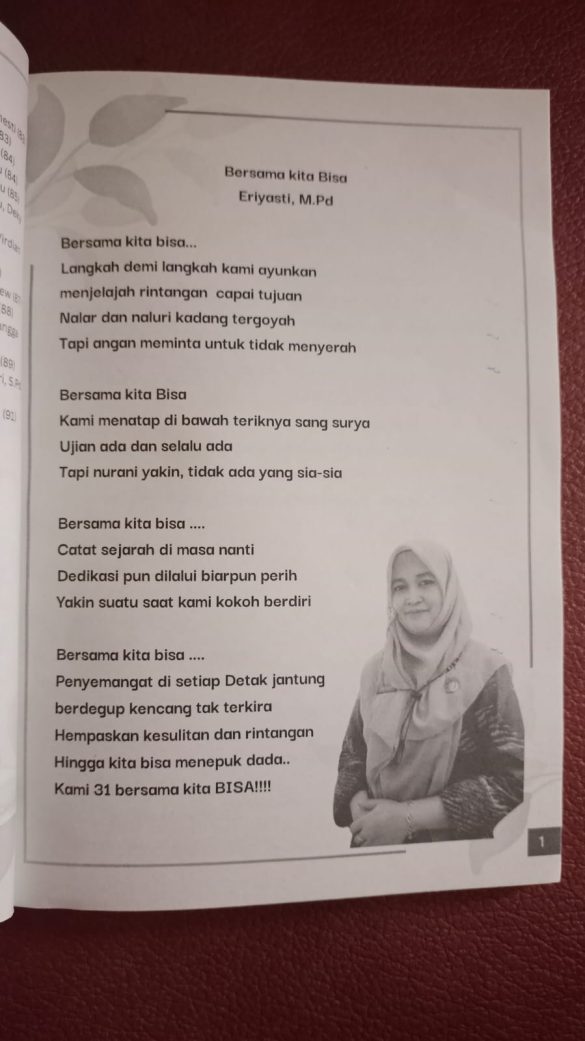 (84)
(89)
(91)
Bersama kita Bisa
Eriyasti, M.Pd
Bersama kita bisa...
Langkah demi langkah kami ayunkan
menjelajah rintangan capai tujuan
Nalar dan naluri kadang tergoyah
Tapi angan meminta untuk tidak menyerah
Bersama kita Bisa
Kami menatap di bawah teriknya sang surya
Ujian ada dan selalu ada
Tapi nurani yakin, tidak ada yang sia-sia
Bersama kita bisa ....
Catat sejarah di masa nanti
Dedikasi pun dilalui biarpun perih
Yakin suatu saat kami kokoh berdiri
Bersama kita bisa ....
Penyemangat di setiap Detak jantung
berdegup kencang tak terkira
Hempaskan kesulitan dan rintangan
Hingga kita bisa menepuk dada..
Kami 31 bersama kita BISA!!!!
1